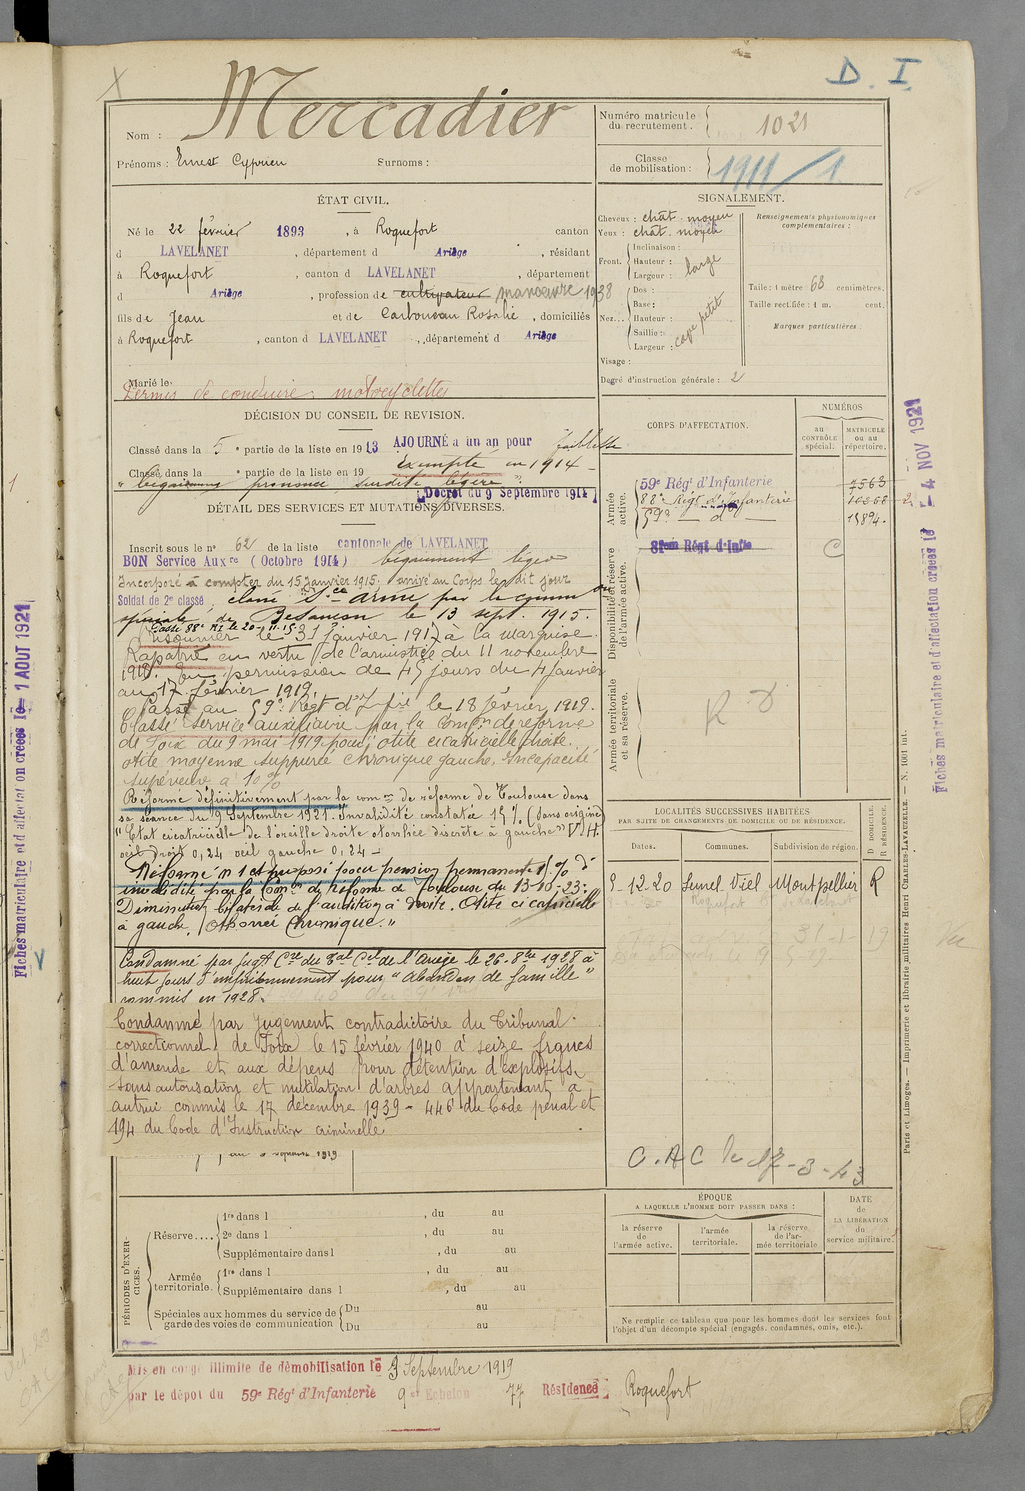 D. I.
Mercadier
Nom :
Prénoms : Ernest Cyprien Surnoms :
Numéro matricule du recrutement. 1021
Classe de mobilisation : 1911/1
ÉTAT CIVIL.
Né le 22 février 1893, à Roquefort canton
d LAVELANET, département d Ariège, résidant
à Roquefort, canton d LAVELANET, département
d Ariège, profession de cultivateur manœuvre 1938
fils de Jean et de Carbonneau Rosalie, domiciliés
à Roquefort, canton d LAVELANET, département d Ariège
Marié le
Permis de conduire : motocyclettes
SIGNALEMENT.
Cheveux : chât. moyen
Yeux : chât. moyen
Front. Inclinaison :
Hauteur :
Largeur : large
Nez... Dos :
Base :
Hauteur :
Saillie :
Largeur :
petit
Visage :
Degré d'instruction générale : 2
Renseignements physionomiques complémentaires :
Taille : 1 mètre 68 centimètres.
Taille rectifiée : 1 m. cent.
Marques particulières :
DÉCISION DU CONSEIL DE REVISION.
Classé dans la 5e partie de la liste en 1913 AJOURNÉ à un an pour faiblesse
Classé dans la e partie de la liste en 19 Exempté en 1914 -
" bégaiement prononcé surdité légère "
Décret du 9 Septembre 1914
DÉTAIL DES SERVICES ET MUTATIONS DIVERSES.
Inscrit sous le n° 62 de la liste cantonale de LAVELANET
BON Service Auxre (Octobre 1914) bégaiement léger
Incorporé à compter du 15 janvier 1915. arrivé au Corps le dit jour
Soldat de 2e classé, classé Sce armé par la comm on
spéciale de Besançon le 13 sept. 1915.
Passé 88e RI le 20-11-15
Prisonnier le 31 janvier 1917 à la Marquise.
Rapatrié en vertu de l'amnistice du 11 novembre
1918. En permission de 45 jours du 4 janvier
au 17 février 1919.
Passé au 59e Régt d'Infie le 18 février 1919.
Classé service auxiliaire par la Comon de réforme
de Foix du 9 mai 1919 pour otite cicatricielle droite.
otite moyenne suppurée chronique gauche, Incapacité
supérieure à 10%
Réformé définitivement par la comon de réforme de Toulouse dans
sa séance du 9 Septembre 1921. Invalidité constatée 15% (dans origine)
"Etat cicatricielle de l'oreille droite otorrhée discrète à gauche" V.H.
œil droit 0,24 œil gauche 0,24 -
Réformé n° 1 et proposé pour pension permanente % d'
invalidité par la Comon de Réforme de Toulouse du 13-10-23:
Diminution bilatérale de l'audition à droite. Otite cicatricielle
à gauche, Otorrée Chronique."
Condamné par jugt Cre du Tal Cel de l'Ariège le 26. 8bre 1928 à
huit jours d'emprisonnement pour "abandon de famille"
commis en 1928.
Condamné par Jugement contradictoire du Tribunal
correctionnel de Foix le 15 février 1940 à seize francs
d'amende et aux dépens pour détention d'explosifs
sans autorisation et mutilation d'arbres appartenant à
autrui commis le 17 décembre 1939 - 446 du Code pénal et
194 du Code d'Instruction criminelle
CORPS D'AFFECTATION.
NUMÉROS
au CONTRÔLE spécial.
MATRICULE ou au répertoire.
Armée active.
59e Régt d'Infanterie 7563
88e Régt d'Infanterie 10368
59e — do — 15894.
Disponibilité et réserve de l'armée active.
81eme Régt d'Infie C
Armée territoriale et sa réserve.
R D
LOCALITÉS SUCCESSIVES HABITÉES
PAR SUITE DE CHANGEMENTS DE DOMICILE OU DE RÉSIDENCE.
Dates. Communes. Subdivision de région. D DOMICILE. R RÉSIDENCE.
9-12-20 Lunel Viel Montpellier R
C.A.C le 17-3-43
ÉPOQUE
A LAQUELLE L'HOMME DOIT PASSER DANS :
la réserve de l'armée active.
l'armée territoriale.
la réserve de l'armée territoriale
DATE de LA LIBÉRATION du service militaire.
Ne remplir ce tableau que pour les hommes dont les services font
l'objet d'un décompte spécial (engagés, condamnés, omis, etc.).
PÉRIODES D'EXERCICES.
Réserve.... 1re dans l , du au
2e dans l , du au
Supplémentaire dans l , du au
Armée territoriale. 1re dans l , du au
Supplémentaire dans l , du au
Spéciales aux hommes du service de garde des voies de communication Du au
Du au
Mis en congé illimité de démobilisation le 3 Septembre 1919
par le dépôt du 59e Régt d'Infanterie 9e Echelon 77 Résidence Roquefort
Fiches matriculaire et d'affectation créées le 1 AOUT 1921
Fiches matriculaire et d'affectation créées le - 4 NOV 1921
Paris et Limoges. — Imprimerie et librairie militaires Henri CHARLES-LAVAUZELLE. — N. 1001 int.